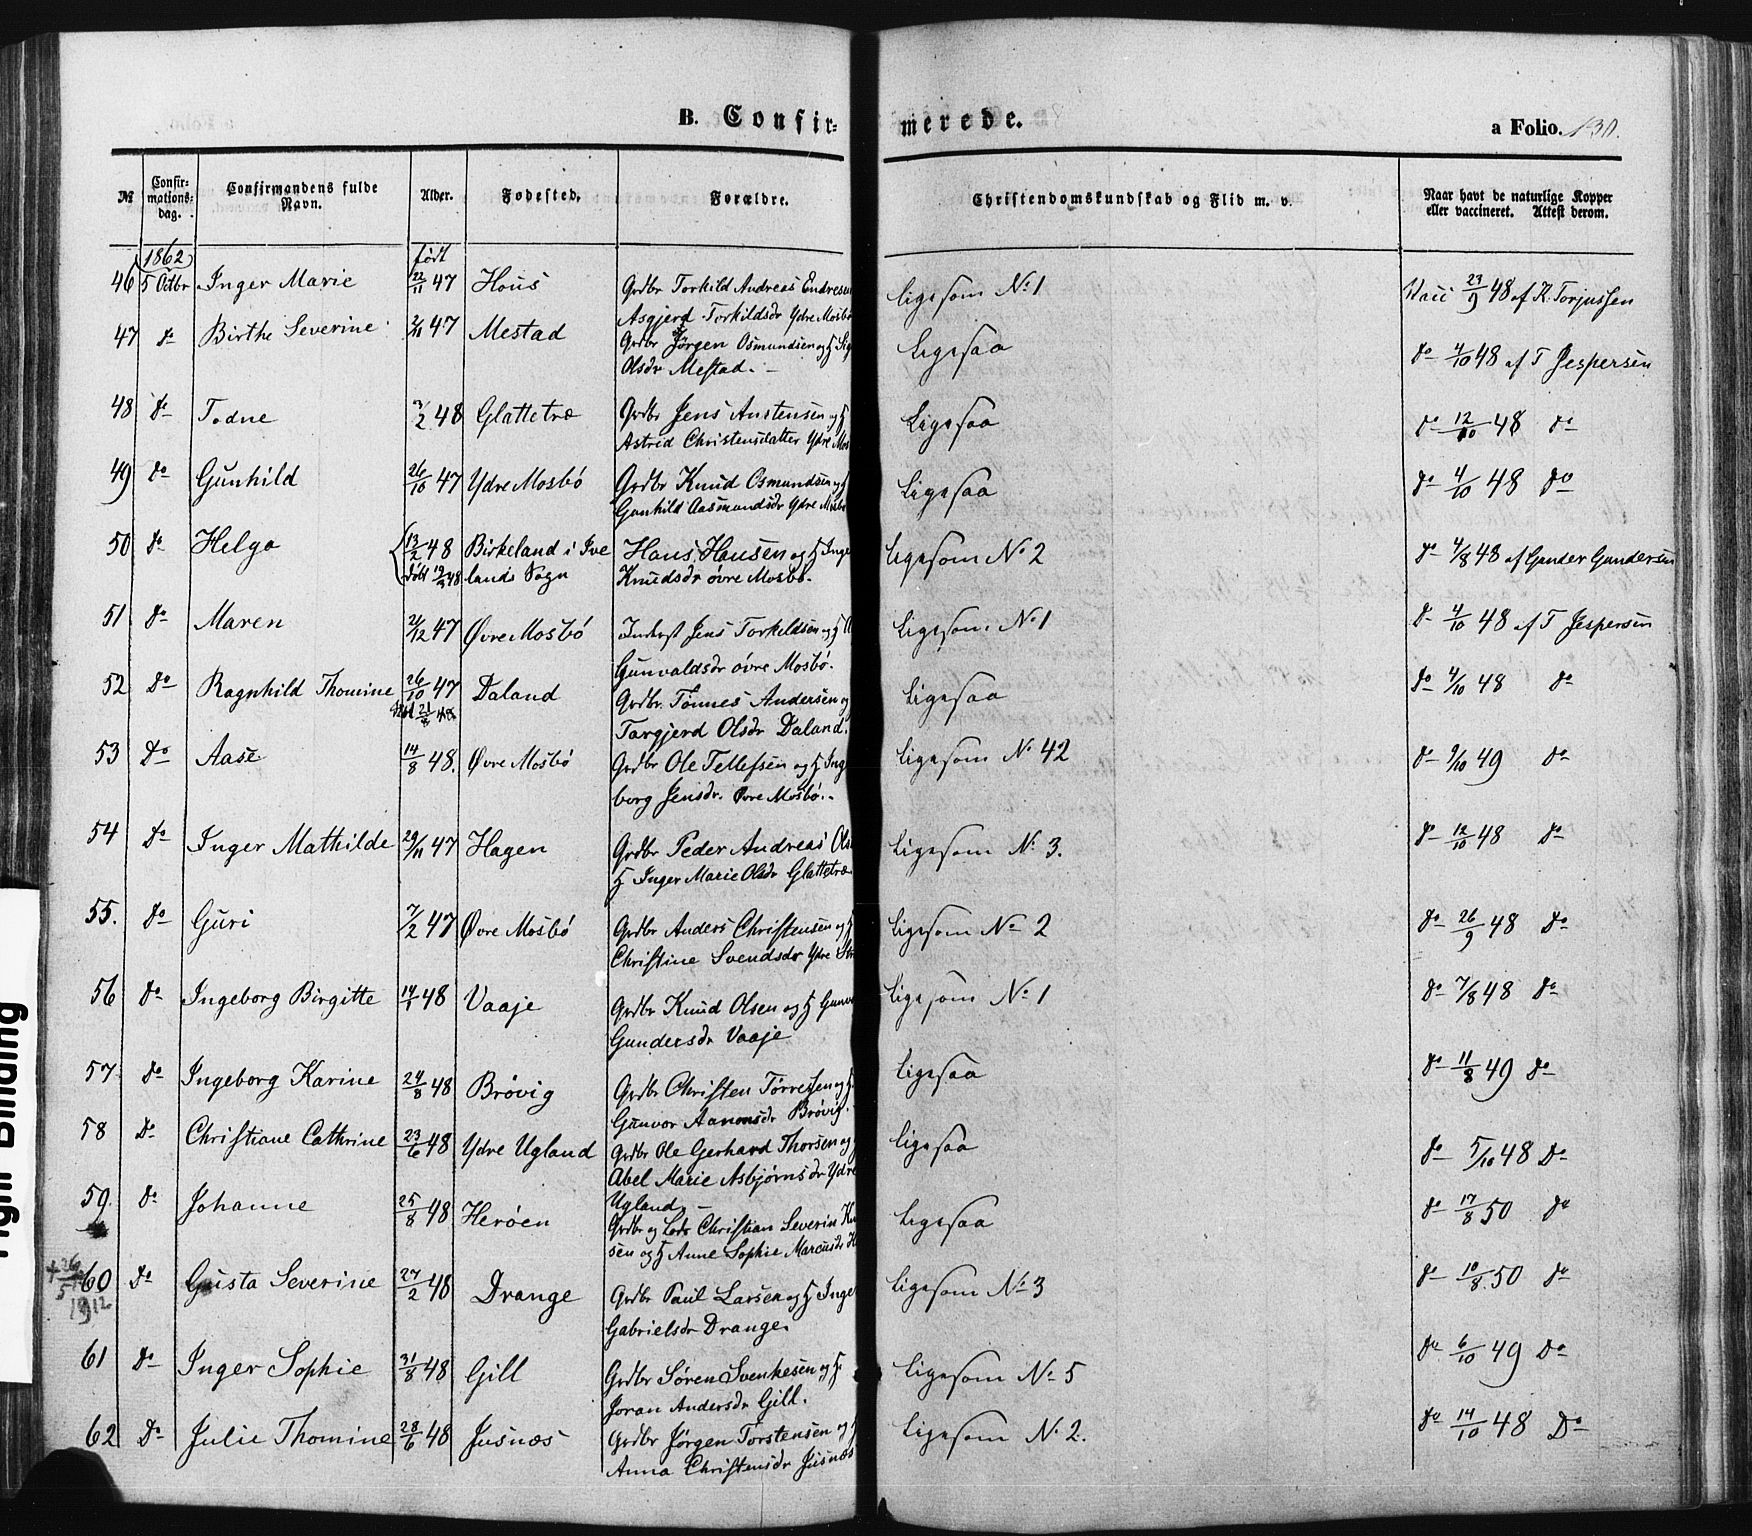 B. Confir-
merede.
a Folio. 130.
№
Confir-
mations-
dag.
Confirmandens fulde
Navn.
Alder.
Fødested.
Forældre.
Christendomskundskab og Flid m. v.
Naar havt de naturlige Kopper
eller vaccineret. Attest derom.
1862 født
46 5 Octbr Inger Marie 22/11 47 Hous Grdbr Torkild Andreas Endresen ligesom No 1 Vacc 23/9 48 af K. Torjussen
Asgjerd Torkildsdr Ydre Mosbø
47 do Birthe Severine 2/11 47 Mestad Grdbr Jørgen Osmundsen og H Ligesaa do 4/10 48 af T Jespersen
Olsdr Mestad.
48 do Todne 2 48 Glattetræ Grdbr Jens Austensen og H Ligesaa do 12/10 48 do
Astrid Christensdatter Ydre Mos
49 do Gunhild 26/10 47 Ydre Mosbø Grdbr Knud Osmundsen og H Ligesaa do 4/10 48 do
Gunhild Aasmundsdr Ydre Mosbø
50 do Helga 13/2 48 Birkeland i Ive Hans Hansen og H Inge ligesom No 2 do 4/8 48 af Gunder Gundersen
døbt 19/2 48 lands Sogn Knudsdr øvre Mosbø.
51 do Maren 2/12 47 Øvre Mosbø Inderst Jens Torkildsen og H ligesom No 1 do 4/10 48 af T Jespersen
Gunvaldsdr øvre Mosbø.
52 Do Ragnhild Thomine 26/10 47 Daland Grdbr. Tønnes Andersen og Ligesaa do 4/10 48 do
Targjerd Olsdr Daland.
53 Do Aase 14/8 48. Øvre Mosbø Grdbr Ole Tellefsen og H Inge ligesom No 42 do 9/10 49 do
borg Jensdr. Øvre Mosbø.
54 Do Inger Mathilde 29/11 47 Hagen Grdbr Peder Andreas Ols ligesom No 3. do 12/10 48 do
H Inger Marie Olsdr Glattetræ
55. Do Guri 7/2 47 Øvre Mosbø Grdbr Anders Christensen og H ligesom No 2 do 26/9 48 Do
Christine Svendsdr Ydre
56 Do Ingeborg Birgitte 14/1 48 Vaaje Grdbr Knud Olsen og H Gunv ligesom No 1 do 7/8 48 do
Gundersdr Vaaje
57 Do Ingeborg Karine 24/8 48 Brøvig Grdbr Christen Tørresen og H ligesaa do 11/8 49 do
Gunvor Aanonsdr Brøvig.
58 Do Christiane Cathrine 23/6 48 Ydre Ugland Grdbr Ole Gerhard Thorsen og ligesaa do 5/10 48 Do
Abel Marie Asbjørnsdr Ydre
Ugland
59. Do Johanne 25/8 48 Herøen Grdbr og Lods Christian Severin ligesaa do 17/8 50 do
sen og H Anne Sophie Marcusdr
+26/5 1912
60 Do Gusta Severine 27/2 48 Drange Grdbr Paul Larsen og H Inge ligesom No 3 do 10/8 50 do
Gabrielsdr Drange.
61 Do Inger Sophie 31/8 48 Gill Grdbr Søren Svenkesen og H ligesom No 5 do 6/10 49 Do
Joran Andersdr Gill.
62 Do Julie Thomine 28/6 48 Jusnæs Grdbr Jørgen Torstensen og H ligesom No 2. do 14/10 48 Do
Anna Christensdr Jusnæs
Binding